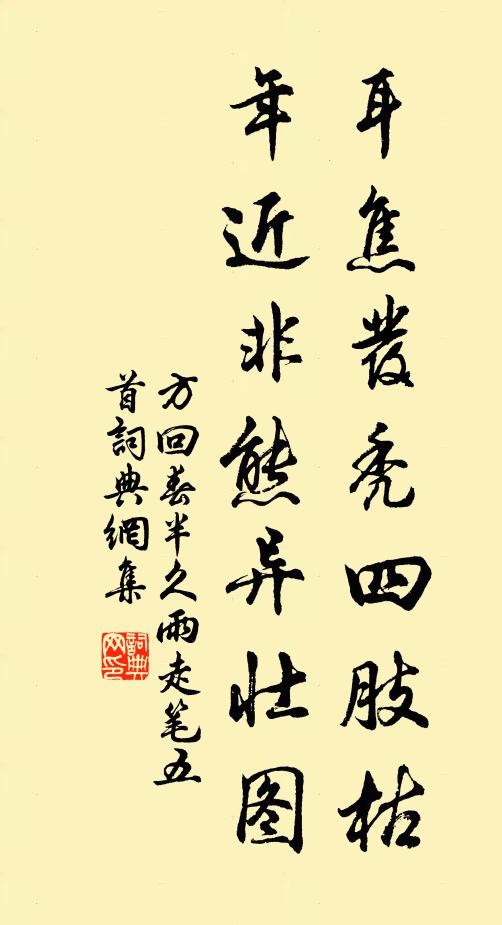 耳焦发秃四肢枯
年近非熊异壮图
方回春半久雨走笔五
首詞典網集
詞典网印